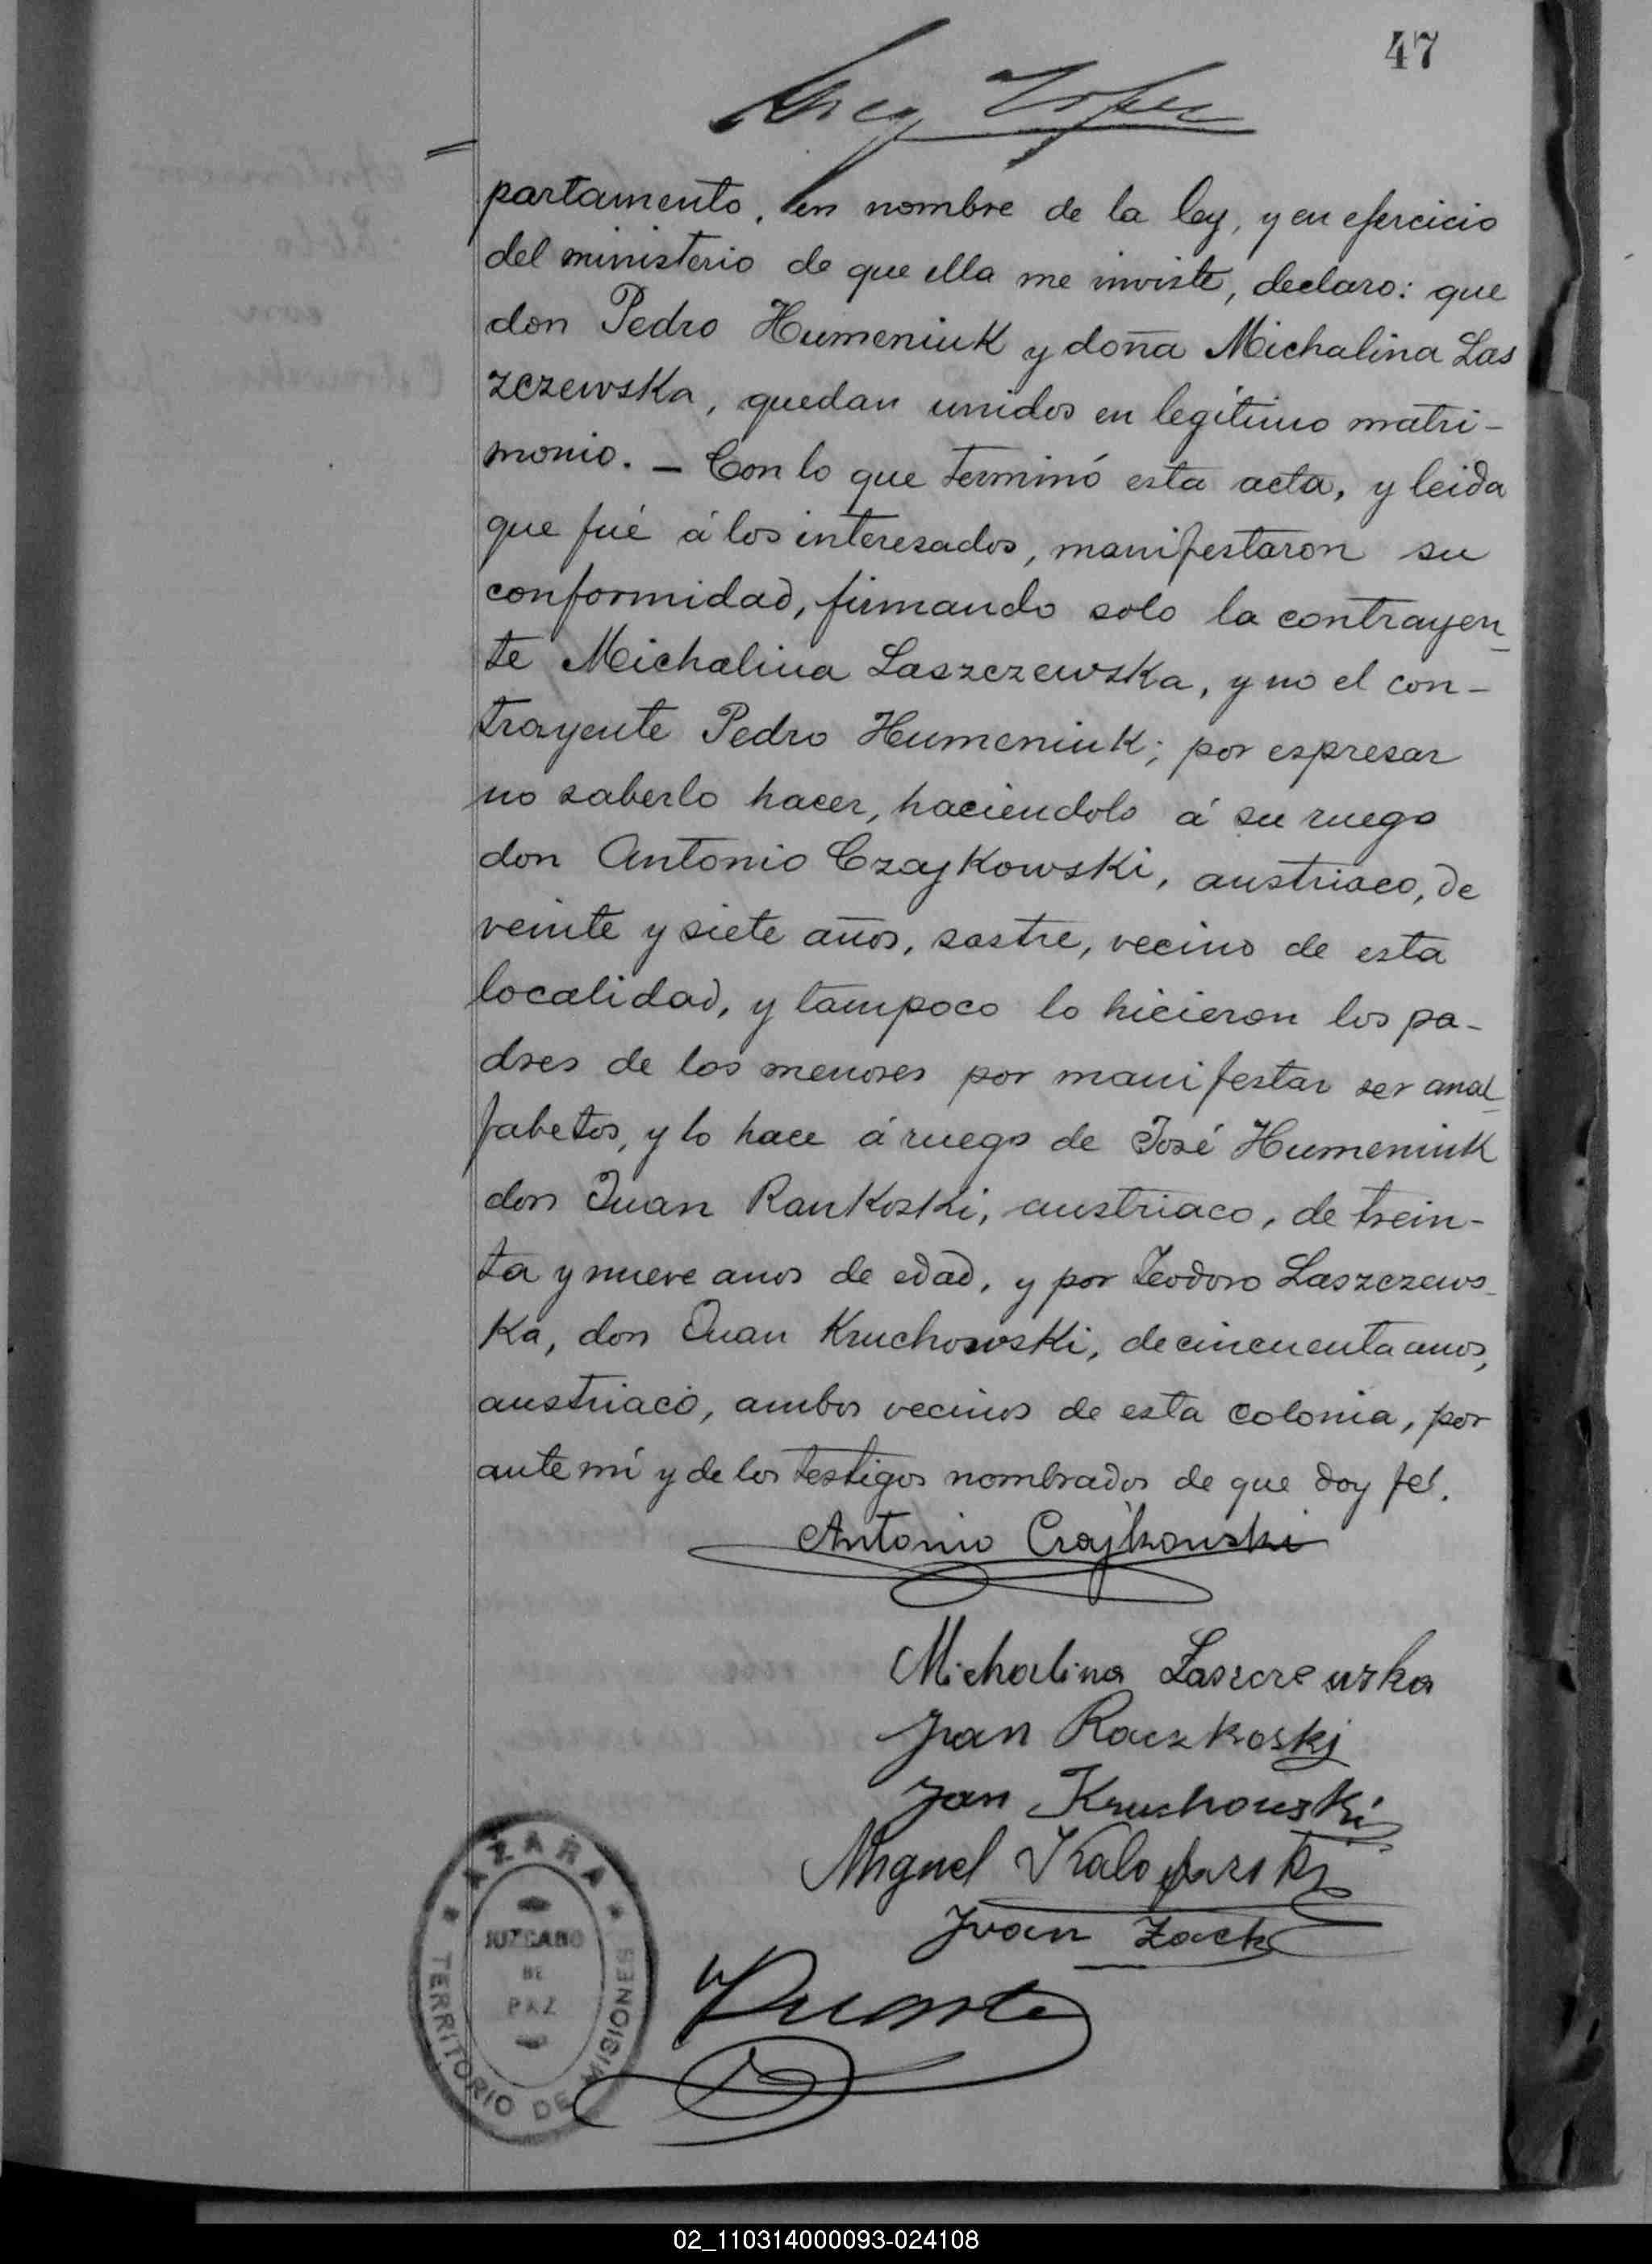 47
partamento, en nombre de la ley, y en ejercicio
del ministerio de que ella me inviste, declaro: que
don Pedro Humeniuk y doña Michalina Las
zczewska, quedan unidos en legítimo matri-
monio. - Con lo que terminó esta acta, y leida
que fué á los interesados, manifestaron su
conformidad, firmando solo la contrayen_
te Michalina Laszczewska, y no el con-
trayente Pedro Humeniuk; por espresar
no saberlo hacer, haciendolo á su ruego
don Antonio Czajkowski, austriaco, de
veinte y siete años, sastre, vecino de esta
localidad, y tampoco lo hicieron los pa-
dres de los menores por manifestar ser anal_
fabetos, y lo hace á ruego de José Humeniuk
don Juan Rankoski, austriaco, de trein-
ta y nueve anos de edad, y por Teodoro Laszczews_
ka, don Juan Kruchowski, de cincuenta anos,
austriaco, ambos vecinos de esta colonia, por
ante mí y de los testigos nombrados de que doy fé.
Antonio Czajkowski
Michalina Laszczewska
Jan Raczkoski
Jan Kruchowski
Miguel
Ivan Zack
AZARA
JUZGADO
DE
PAZ
TERRITORIO DE MISIONES
02_110314000093-024108